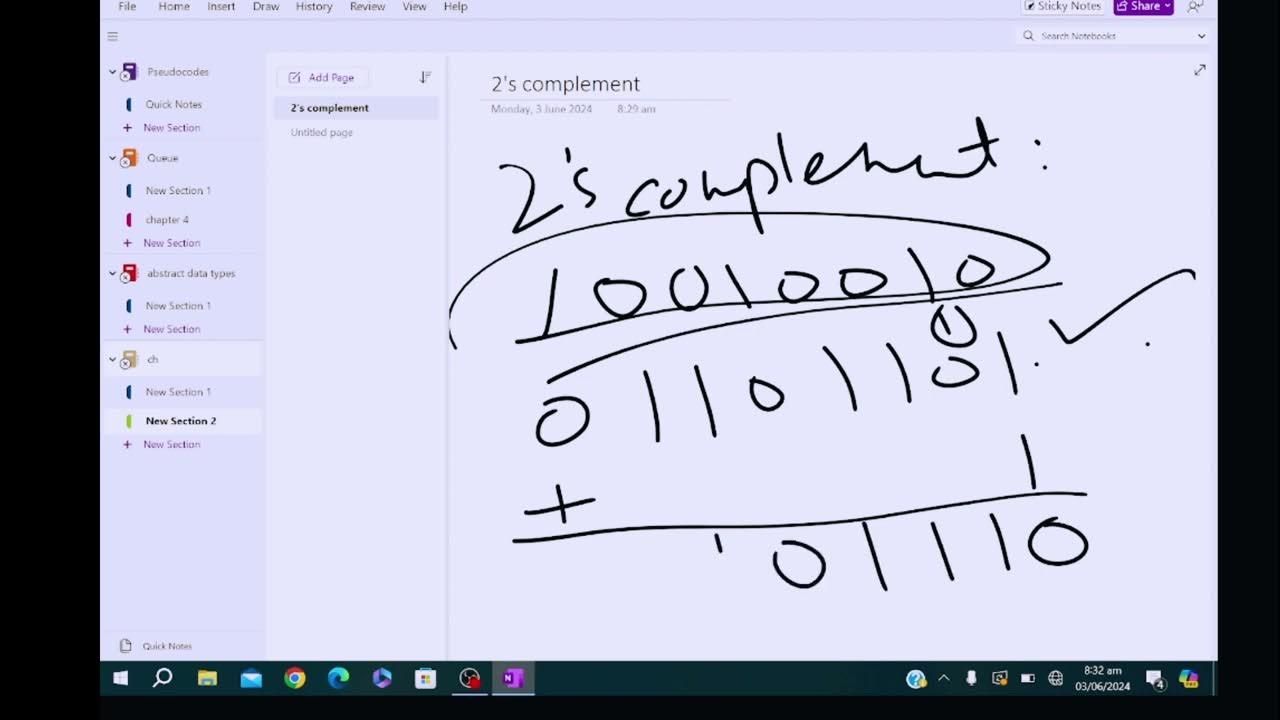 File Home Insert Draw History Review View Help Sticky Notes Share
Search Notebooks
Pseudocodes
Quick Notes
+ New Section
Queue
New Section 1
chapter 4
+ New Section
abstract data types
New Section 1
+ New Section
ch
New Section 1
New Section 2
+ New Section
Quick Notes
Add Page
2's complement
Untitled page
2's complement
Monday, 3 June 2024 8:29 am
2's complement :
10010010
1
01101101
+ 1
01110
8:32 am
03/06/2024
4